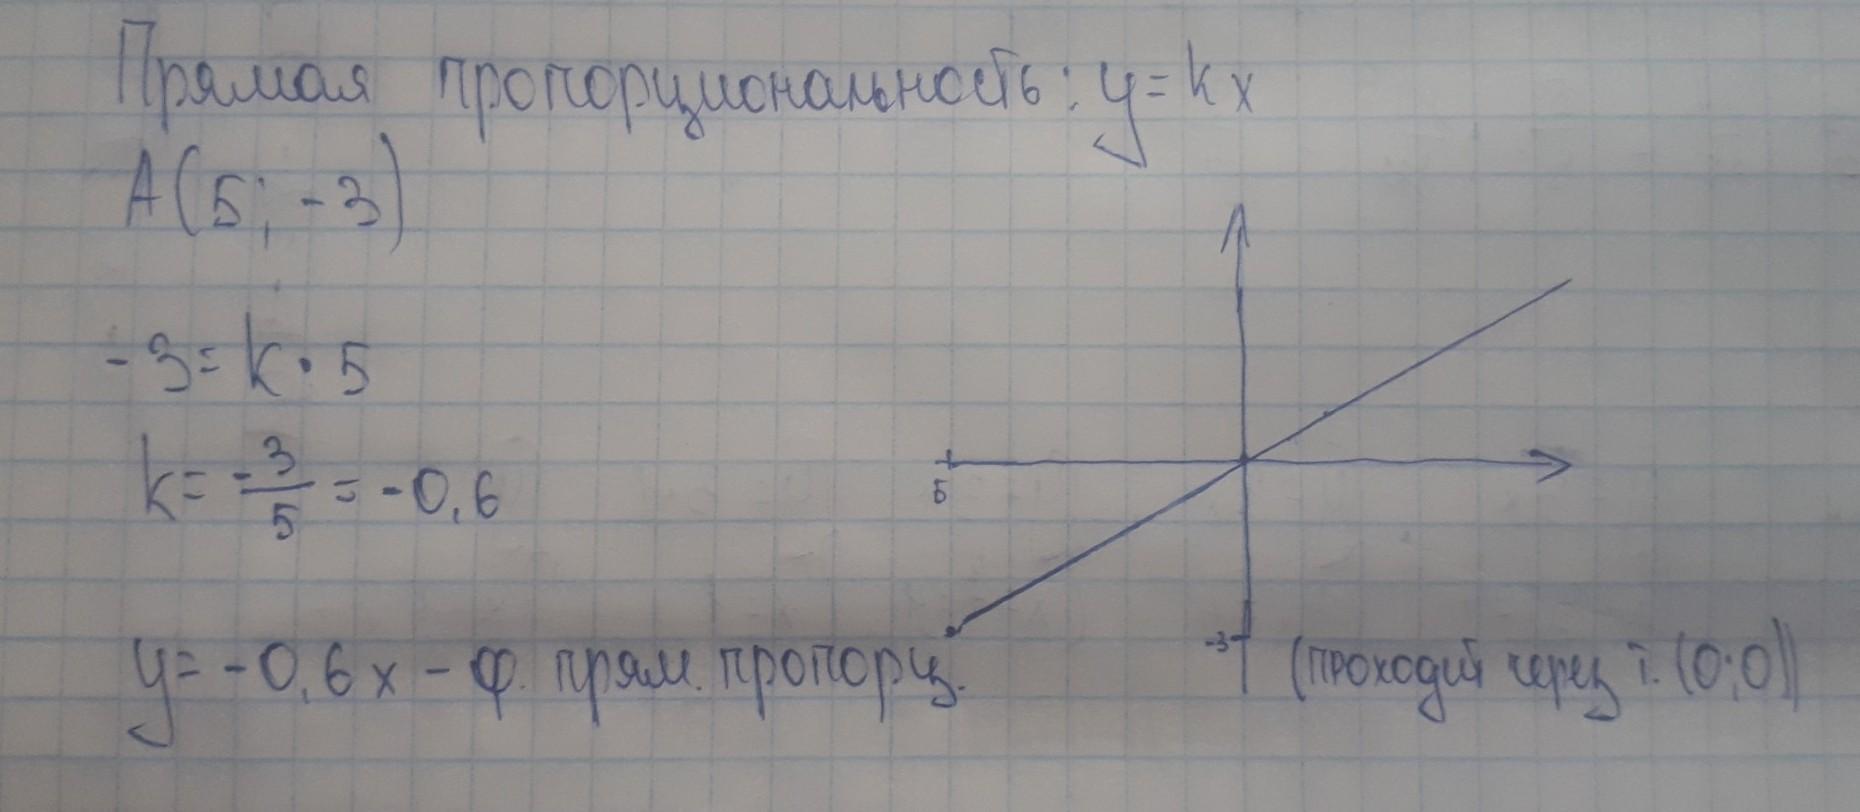 Прямая пропорциональность: y = kx
A(5; -3)
-3 = k · 5
k = -3/5 = -0,6
5
-3
y = -0,6x - ф. прям. пропорц.
(проходит через т. (0;0))